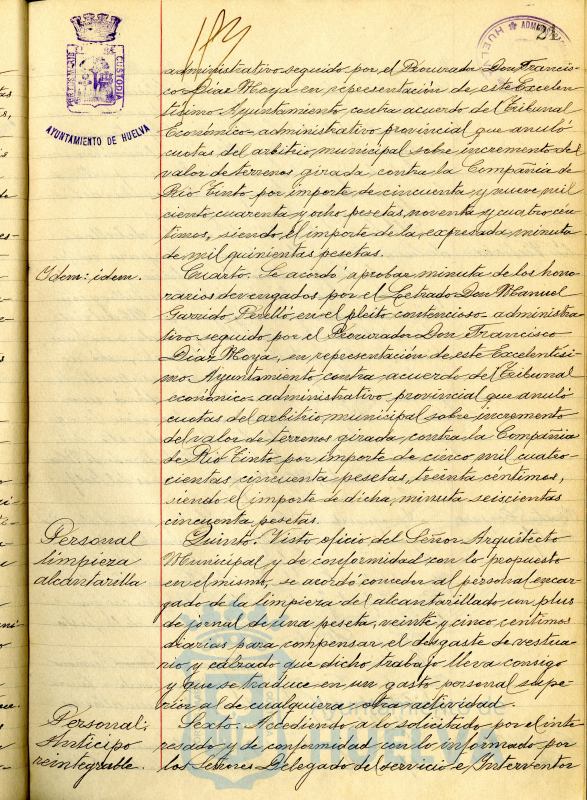 PORTUS MARIS ET TERRAE CUSTODIA
AYUNTAMIENTO DE HUELVA
HUEL
ADM
administrativo seguido por el Procurador Don Francis-
co Díaz Moya en representación de este Excelen-
tísimo Ayuntamiento contra acuerdo del Tribunal
Económico-administrativo provincial que anuló
cuotas del arbitrio municipal sobre incremento del
valor de terrenos girada contra la Compañia de
Rio Tinto por importe de cincuenta y nueve mil
ciento cuarenta y ocho pesetas, noventa y cuatro cén-
timos, siendo el importe de la expresada minuta
de mil quinientas pesetas.
Idem: idem.
Cuarto. Se acordó aprobar minuta de los hono-
rarios devengados por el Letrado Don Manuel
Garrido Perelló, en el pleito contencioso-administra-
tivo seguido por el Procurador Don Francisco
Díaz Moya, en representación de este Excelentísi-
mo Ayuntamiento contra acuerdo del Tribunal
económico-administrativo provincial que anuló
cuotas del arbitrio municipal sobre incremento
del valor de terrenos girada contra la Compañia
de Rio Tinto por importe de cinco mil cuatro-
cientas cincuenta pesetas, treinta céntimos,
siendo el importe de dicha minuta seiscientas
cincuenta pesetas.
Personal
limpieza
alcantarilla
Quinto. Visto oficio del Señor Arquitecto
Municipal y de conformidad con lo propuesto
en el mismo, se acordó conceder al personal encar-
gado de la limpieza del alcantarillado un plus
de jornal de una peseta, veinte y cinco centimos
diarias para compensar el desgaste de vestua-
rio y calzado que dicho trabajo lleva consigo
y que se traduce en un gasto personal supe-
rior al de cualquiera otra actividad.
Personal:
Anticipo
reintegrable.
Sexto. Accediendo a lo solicitado por el inte-
resado y de conformidad con lo informado por
los Señores Delegado del servicio e Interventor
HUELVA